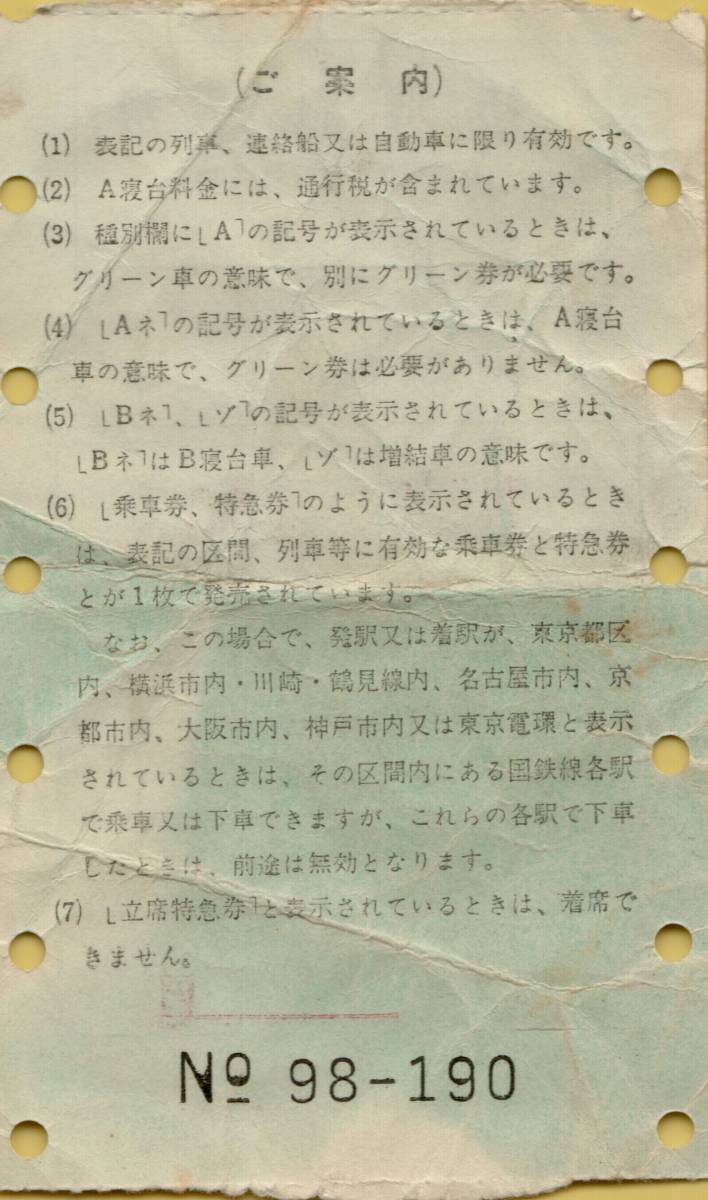 (ご案内)
(1) 表記の列車、連絡船又は自動車に限り有効です。
(2) A寝台料金には、通行税が含まれています。
(3) 種別欄に「A」の記号が表示されているときは、
グリーン車の意味で、別にグリーン券が必要です。
(4) 「Aネ」の記号が表示されているときは、A寝台
車の意味で、グリーン券は必要がありません。
(5) 「Bネ」、「ゾ」の記号が表示されているときは、
「Bネ」はB寝台車、「ゾ」は増結車の意味です。
(6) 「乗車券、特急券」のように表示されているとき
は、表記の区間、列車等に有効な乗車券と特急券
とが1枚で発売されています。
なお、この場合で、発駅又は着駅が、東京都区
内、横浜市内・川崎・鶴見線内、名古屋市内、京
都市内、大阪市内、神戸市内又は東京電環と表示
されているときは、その区間内にある国鉄線各駅
で乗車又は下車できますが、これらの各駅で下車
したときは、前途は無効となります。
(7) 「立席特急券」と表示されているときは、着席で
きません。
№ 98-190